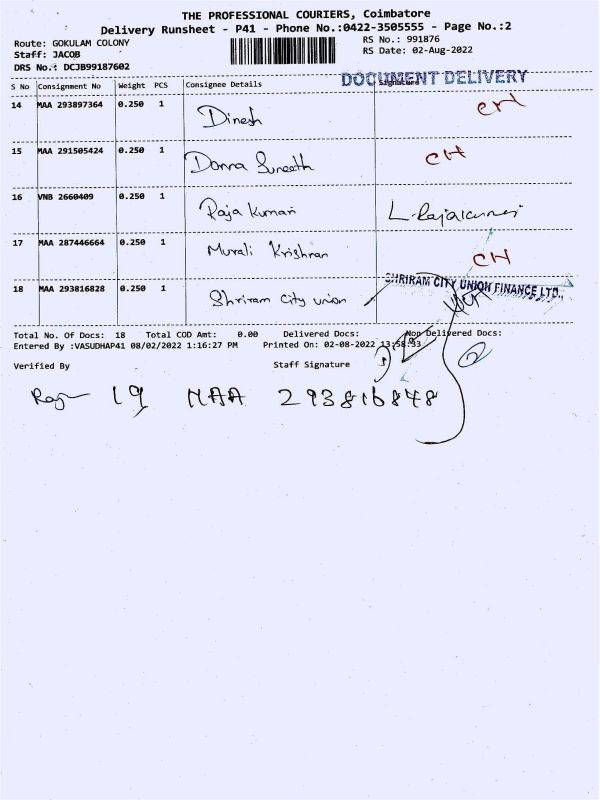 THE PROFESSIONAL COURIERS, Coimbatore
Delivery Runsheet - P41 - Phone No.:0422-3505555 - Page No.:2
Route: GOKULAM COLONY
RS No.: 991876
Staff: JACOB
RS Date: 02-Aug-2022
DRS No.: DCJB99187602
DOCUMENT DELIVERY
S No Consignment No Weight PCS Consignee Details Signature
14 MAA 293897364 0.250 1 Dinesh CH
15 MAA 291505424 0.250 1 Donna Suneeth CH
16 VNB 2660409 0.250 1 Raja Kumari L. Rajakumari
17 MAA 287446664 0.250 1 Murali Krishnan CH
18 MAA 293816828 0.250 1 Shriram City union
SHRIRAM CITY UNION FINANCE LTD.,
Total No. Of Docs: 18 Total COD Amt: 0.00 Delivered Docs: Non Delivered Docs:
Entered By :VASUDHAP41 08/02/2022 1:16:27 PM Printed On: 02-08-2022 13:58:33
2
Verified By Staff Signature
19 MAA 293816848